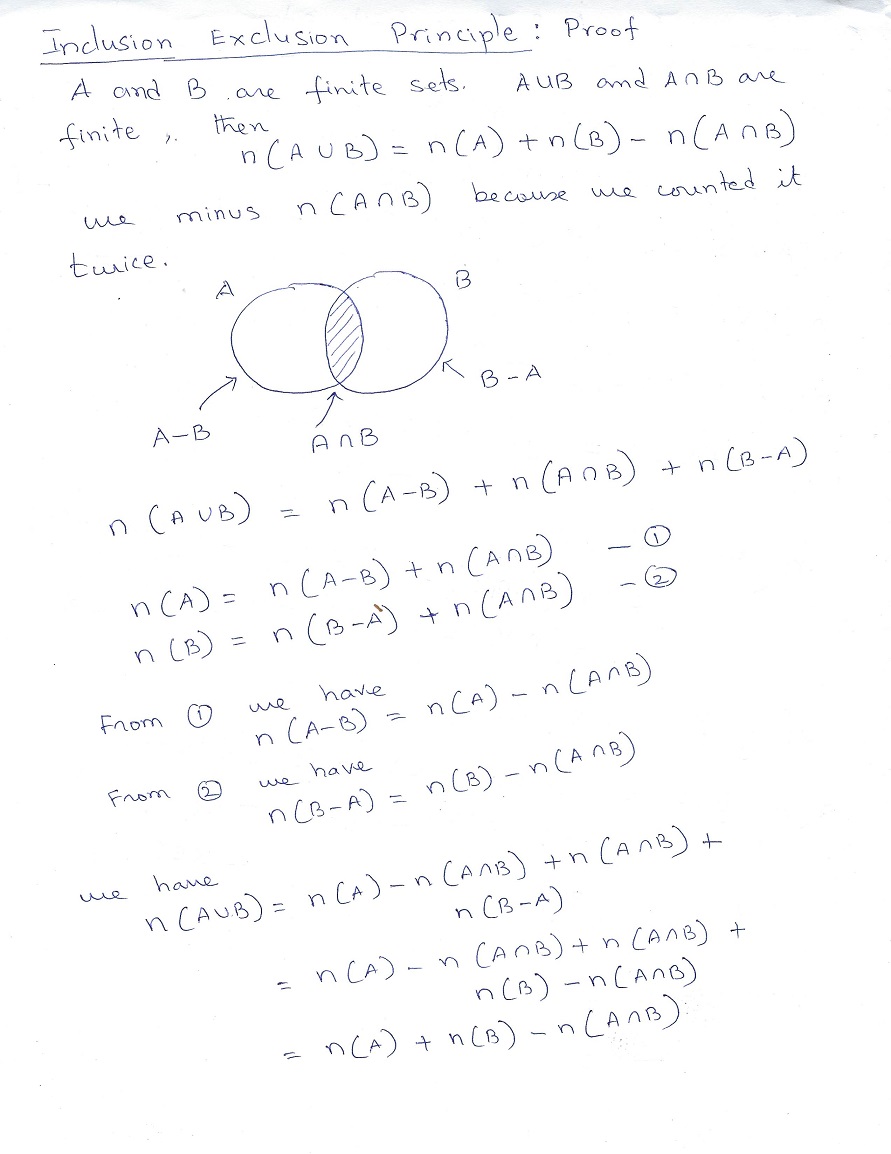 Inclusion Exclusion Principle : Proof
A and B are finite sets. A∪B and A∩B are
finite, then
n(A∪B) = n(A) + n(B) - n(A∩B)
we minus n(A∩B) because we counted it
twice.
A B
B-A
A-B A∩B
n(A∪B) = n(A-B) + n(A∩B) + n(B-A)
n(A) = n(A-B) + n(A∩B) - ①
n(B) = n(B-A) + n(A∩B) - ②
From ① we have
n(A-B) = n(A) - n(A∩B)
From ② we have
n(B-A) = n(B) - n(A∩B)
we have
n(A∪B) = n(A) - n(A∩B) + n(A∩B) +
n(B-A)
= n(A) - n(A∩B) + n(A∩B) +
n(B) - n(A∩B)
= n(A) + n(B) - n(A∩B)